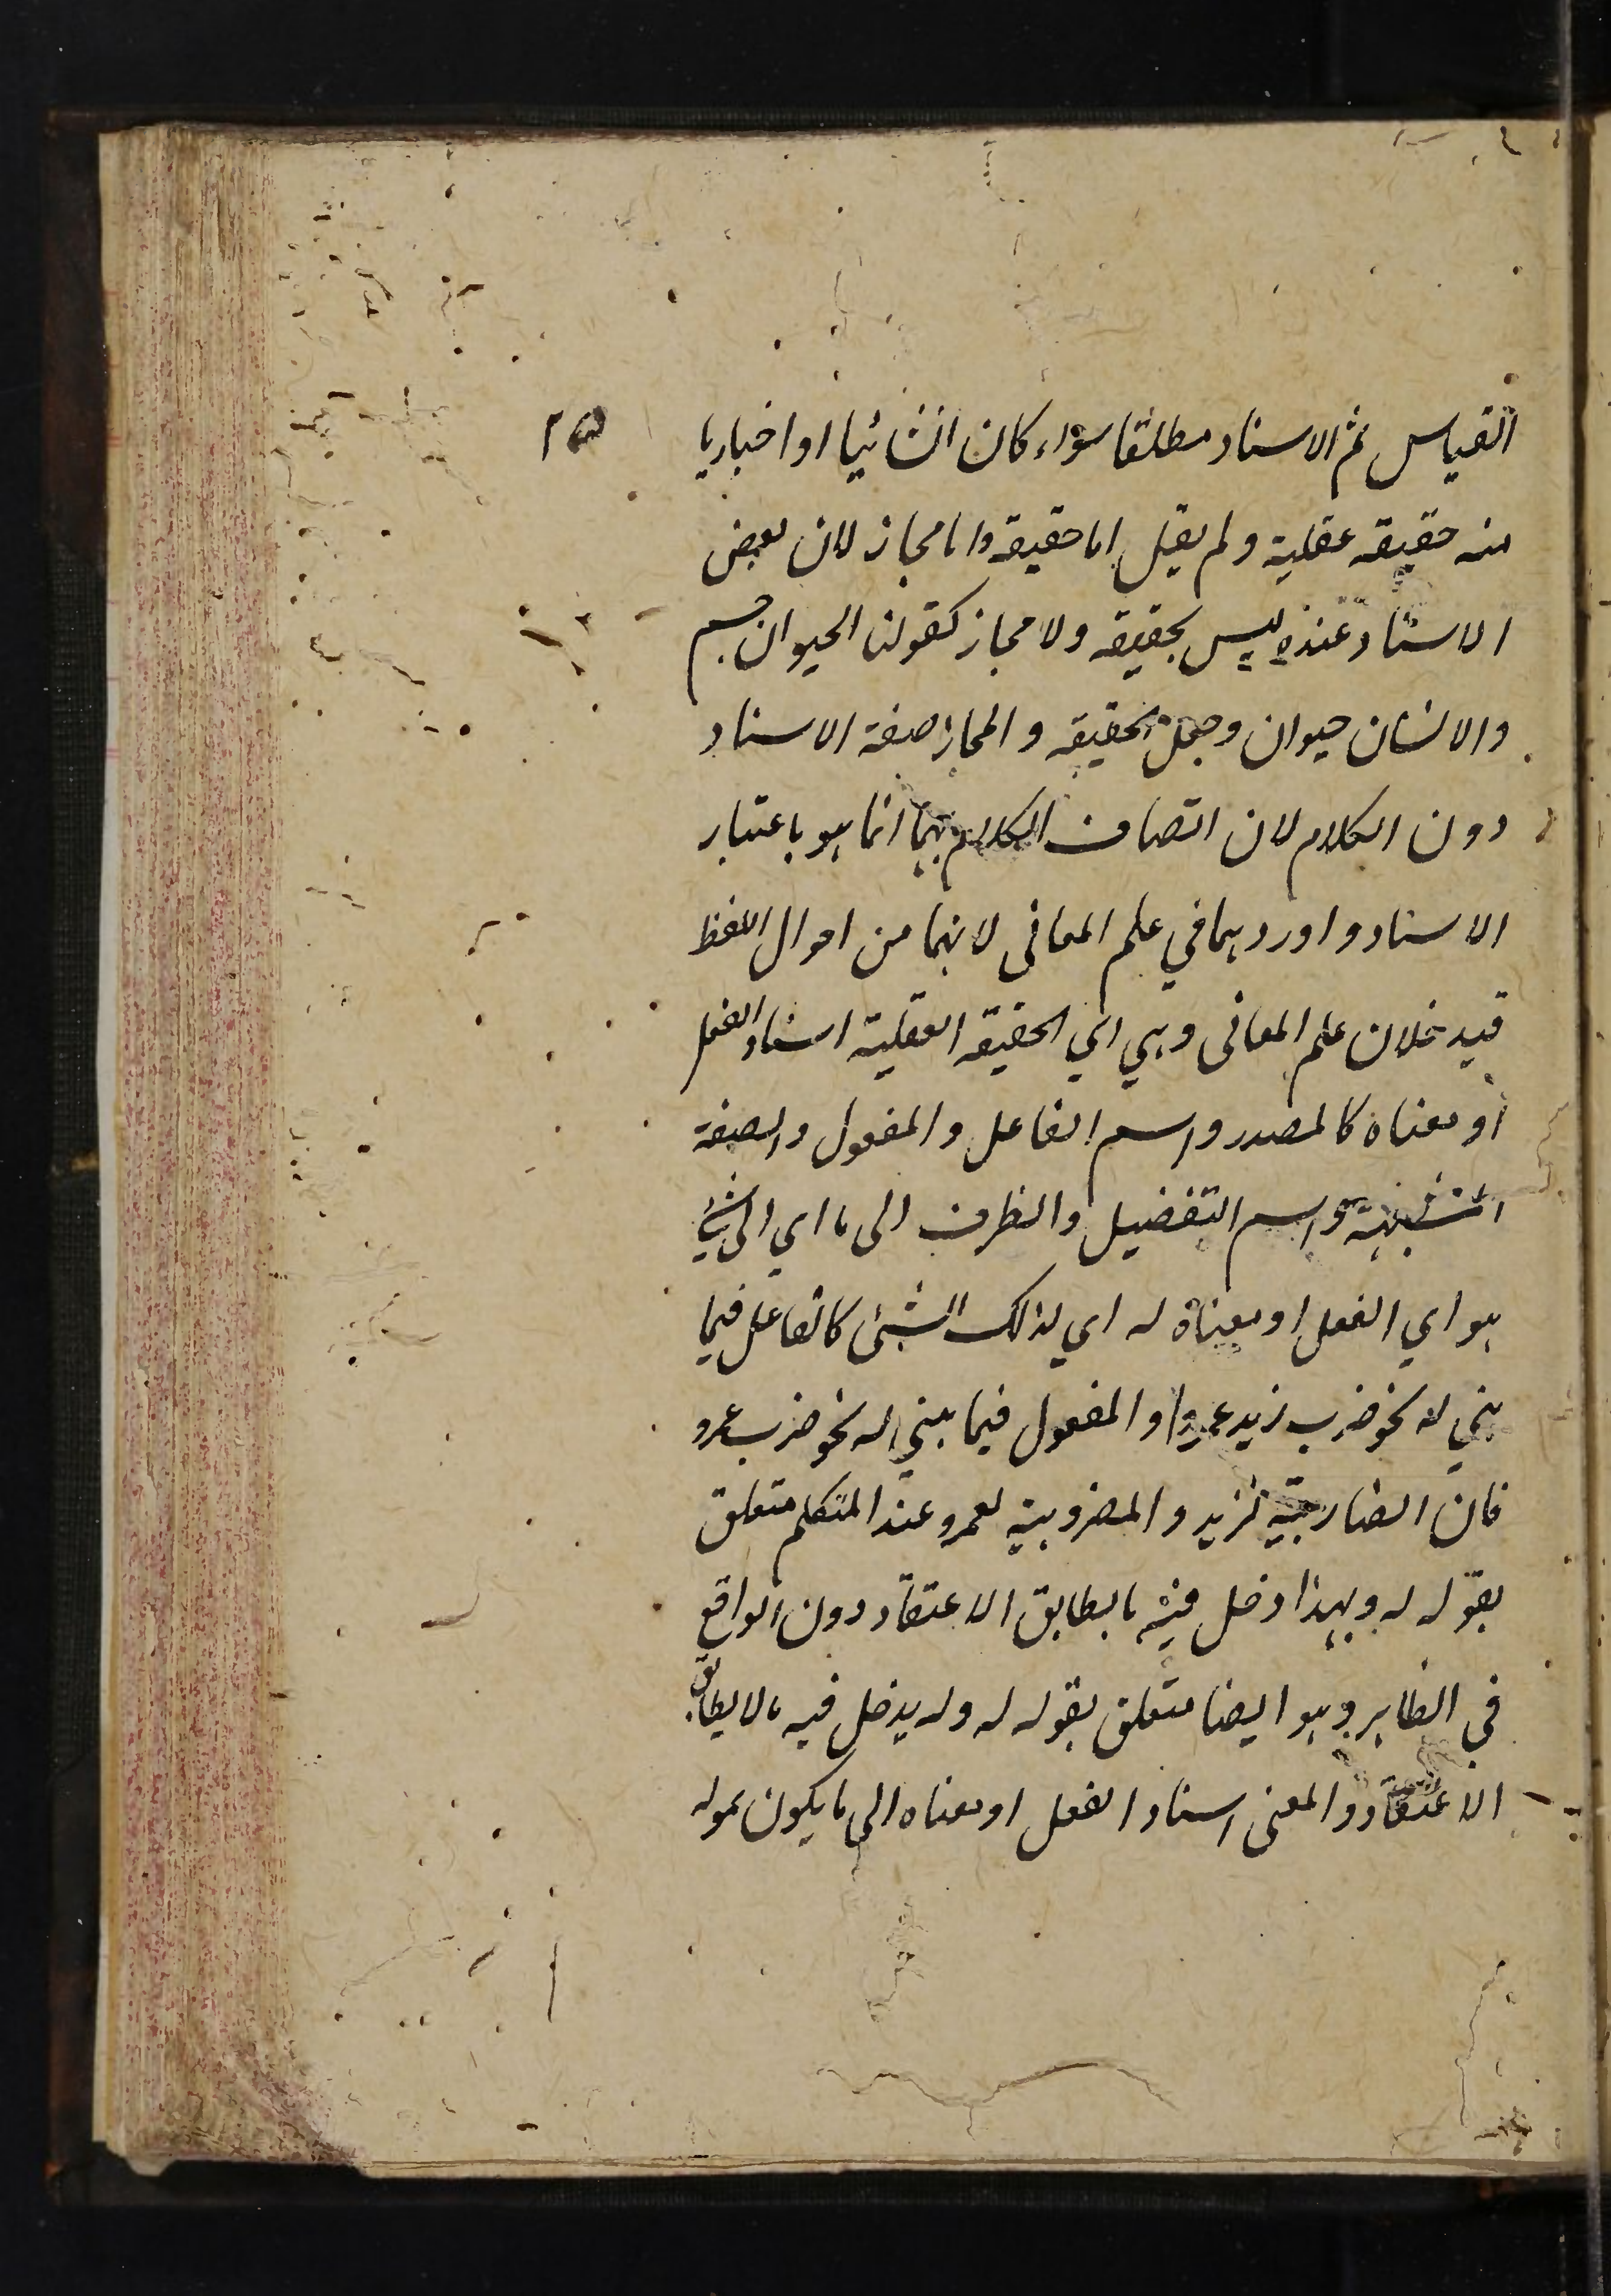 القياس ثم الاسناد مطلقا سواء كان انشائيا او اخباريا
٢٥
منه حقيقة عقلية ولم يقل اما حقيقة واما مجاز لان بعض
الاسناد عنده ليس بحقيقة ولا مجاز كقولنا الحيوان جسم
والانسان حيوان وجعل الحقيقة والمجاز صفة الاسناد
دون الكلام لان اتصاف الكلام بهما انما هو باعتبار
الاسناد واوردهما في علم المعانى لانهما من احوال اللفظ
فيدخلان علم المعانى وهي اي الحقيقة العقلية اسناد الفعل
او معناه كالمصدر واسم الفاعل والمفعول والصفة
المشبهة واسم التفضيل والظرف الى ما اي الى شئ
هو اي الفعل او معناه له اي لذلك الشئ كالفاعل فيما
بني له نحو ضرب زيد عمروا والمفعول فيما بني له نحو ضرب عمرو
فان الضاربية لزيد والمضروبية لعمرو عند المتكلم متعلق
بقوله له وبهذا دخل فيه ما يطابق الاعتقاد دون الواقع
في الظاهر وهو ايضا متعلق بقوله له وله يدخل فيه ما لا يطابق
الاعتقاد والمعنى اسناد الفعل او معناه الى ما يكون هو له